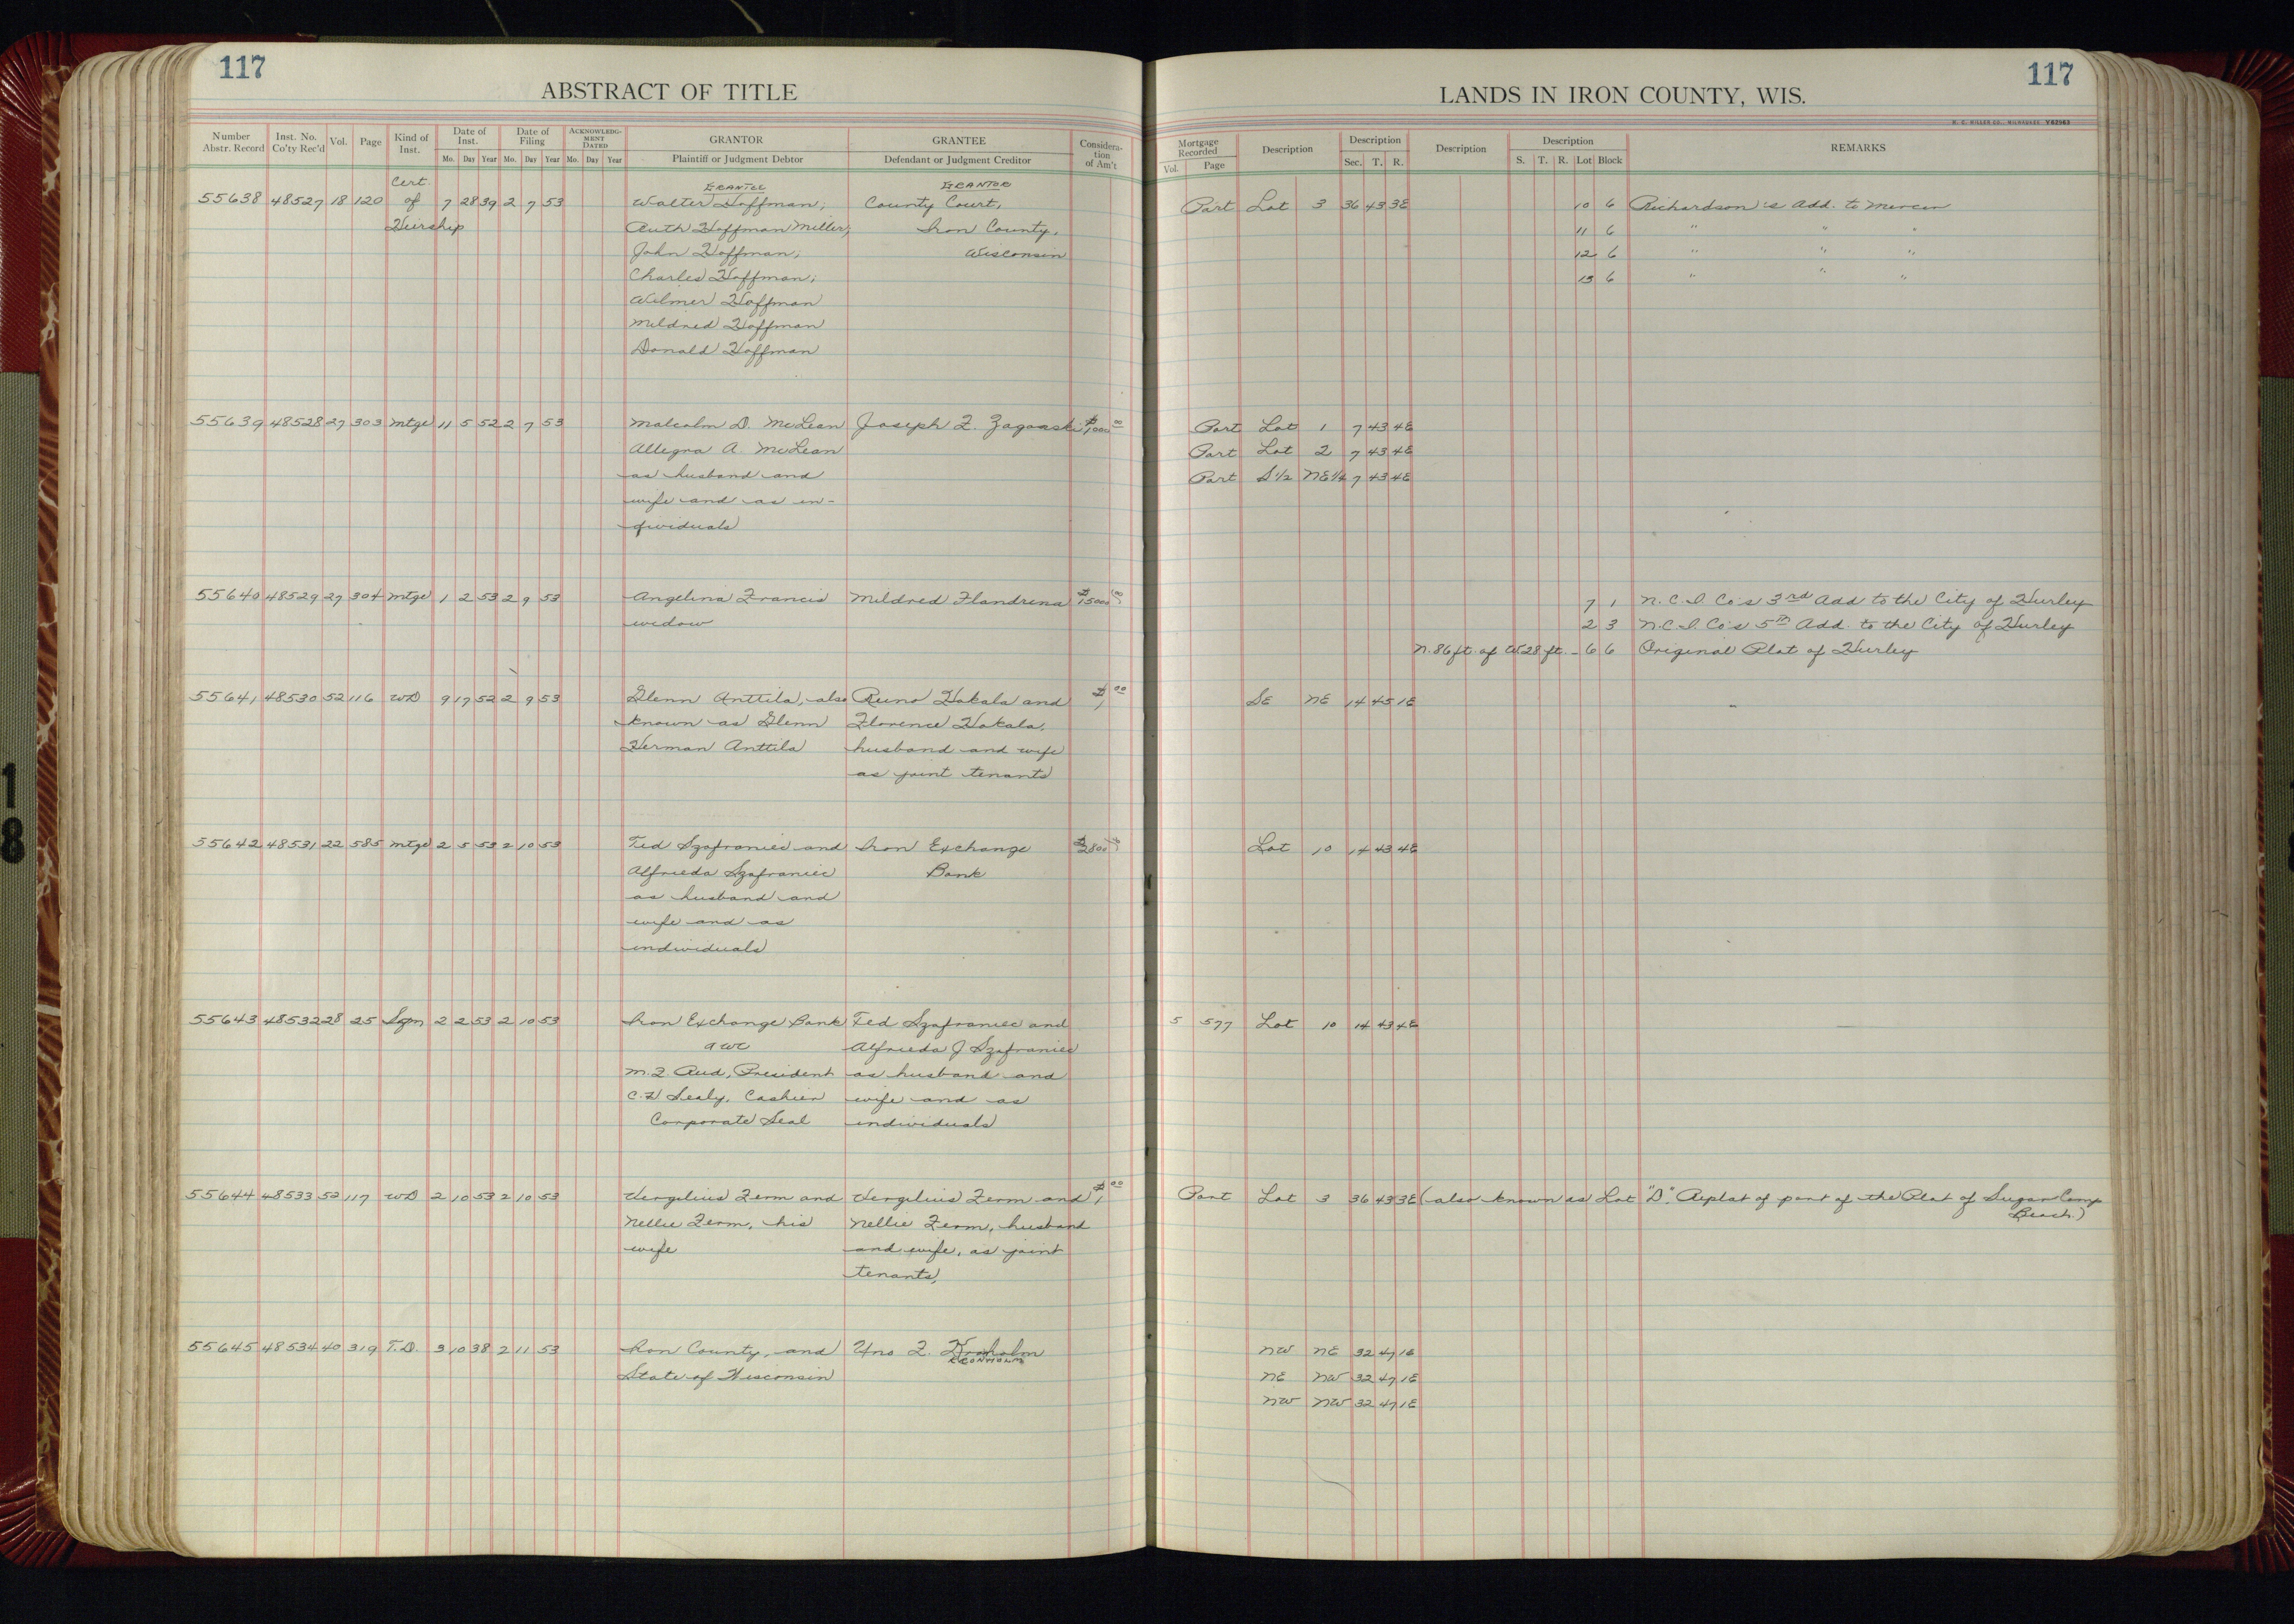 117
ABSTRACT OF TITLE
Number Abstr. Record | Inst. No. Co'ty Rec'd | Vol. | Page | Kind of Inst. | Date of Inst. Mo. Day Year | Date of Filing Mo. Day Year | ACKNOWLEDGMENT DATED Mo. Day Year | GRANTOR Plaintiff or Judgment Debtor | GRANTEE Defendant or Judgment Creditor | Consideration of Am't
Cert. GRANTEE GRANTOR
55638 48527 18 120 of 7 28 39 2 7 53 Walter Hoffman; County Court,
Heirship Ruth Hoffman Miller; Iron County,
John Hoffman; Wisconsin
Charles Hoffman;
Wilmer Hoffman
Mildred Hoffman
Donald Hoffman
55639 48528 27 303 Mtge 11 5 52 2 7 53 Malcolm D. McLean Joseph F. Zagorski $1000 00
Allegra A. McLean
as husband and
wife and as in-
dividuals
55640 48529 27 304 Mtge 1 2 53 2 9 53 Angelina Francis Mildred Flandrena $15000 00
widow
55641 48530 52 116 WD 9 17 52 2 9 53 Glenn Anttila, also Reino Hakala and $1 00
known as Glenn Florence Hakala,
Herman Anttila husband and wife
as joint tenants
55642 48531 22 585 Mtge 2 5 53 2 10 53 Ted Szafraniec and Iron Exchange $2800
Alfrieda Szafraniec Bank
as husband and
wife and as
individuals
55643 48532 28 25 2 2 53 2 10 53 Iron Exchange Bank Ted Szafraniec and
Alfrieda J Szafraniec
M.F. Aud, President as husband and
C.F. Sealy, Cashier wife and as
Corporate Seal individuals
55644 48533 52 117 WD 2 10 53 2 10 53 Vergilius Ferm and Vergilius Ferm and $1 00
Nellie Ferm, his Nellie Ferm, husband
wife and wife, as joint
tenants,
55645 48534 40 319 T.D. 3 10 38 2 11 53 Iron County, and Uno F. Kronholm
KRONHOLM
State of Wisconsin
117
LANDS IN IRON COUNTY, WIS.
H. C. MILLER CO., MILWAUKEE V62963
Mortgage Recorded Vol. Page | Description | Description Sec. T. R. | Description | Description S. T. R. Lot Block | REMARKS
Part Lot 3 36 43 3E 10 6 Richardson's Add. to Mercer
11 6 " " "
12 6 " " "
13 6 " " "
Part Lot 1 7 43 4E
Part Lot 2 7 43 4E
Part S 1/2 NE 1/4 7 43 4E
7 1 N.C.I. Co's 3rd Add to the City of Hurley
2 3 N.C.I. Co's 5th Add. to the City of Hurley
N. 86 ft. of W 28 ft. - 6 6 Original Plat of Hurley
SE NE 14 45 1E
Lot 10 14 43 4E
5 577 Lot 10 14 43 4E
Part Lot 3 36 43 3E (also known as Lot "D", Replat of part of the Plat of Sugar Camp
Beach.)
NW NE 32 47 1E
NE NW 32 47 1E
NW NW 32 47 1E
18